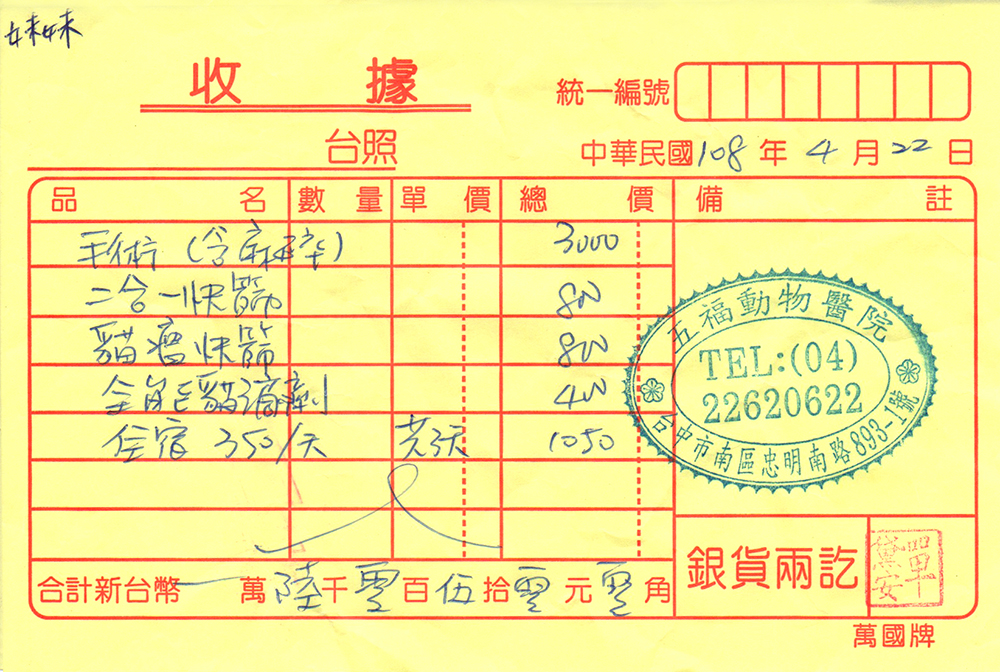 妹妹
收據
統一編號
台照
中華民國108年4月22日
品名 數量 單價 總價 備註
手術(含麻醉) 3000
二合一快篩 800
貓瘟快篩 800
全能貓滴劑 400
住宿 350/天 共3天 1050
五福動物醫院
TEL:(04)
22620622
台中市南區忠明南路893-1號
合計新台幣 萬陸千零百伍拾零元零角
銀貨兩訖
黛安
萬國牌